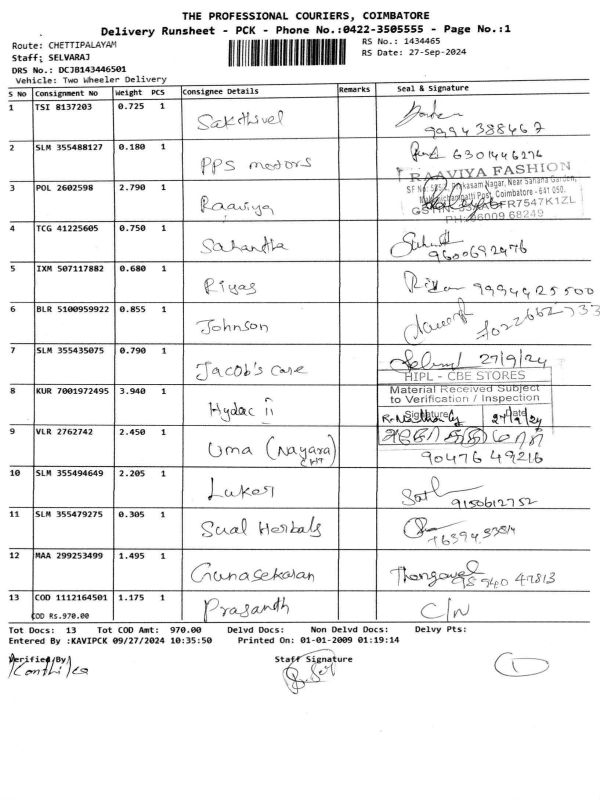 THE PROFESSIONAL COURIERS, COIMBATORE
Delivery Runsheet - PCK - Phone No.:0422-3505555 - Page No.:1
Route: CHETTIPALAYAM
RS No.: 1434465
Staff: SELVARAJ
RS Date: 27-Sep-2024
DRS No.: DCJB143446501
Vehicle: Two Wheeler Delivery
S No Consignment No Weight PCS Consignee Details Remarks Seal & Signature
1 TSI 8137203 0.725 1 Sakthivel
9994388467
2 SLM 355488127 0.180 1 PPS motors 6301446276
RAAVIYA FASHION
3 POL 2602598 2.790 1 Raaviya
Nagar, Near Sahana Garden,
Post, Coimbatore - 641 050.
FR7547K1ZL
68249
4 TCG 41225605 0.750 1 Sahantha
9600692476
5 IXM 507117882 0.680 1 Riyas 9994425500
6 BLR 5100959922 0.855 1 Johnson
7 SLM 355435075 0.790 1 Jacob's care 27/9/24
HIPL - CBE STORES
Material Received Subject
to Verification / Inspection
8 KUR 7001972495 3.940 1 Hydac ii
Signature Date
27/9/24
9 VLR 2762742 2.450 1 Uma (Nayara)
90476 49216
10 SLM 355494649 2.205 1 Luker
9150612752
11 SLM 355479275 0.305 1 Sual Herbals
12 MAA 299253499 1.495 1 Gunasekaran Thangavel
95940 47813
13 COD 1112164501 1.175 1 Prasandh C/N
COD Rs.970.00
Tot Docs: 13 Tot COD Amt: 970.00 Delvd Docs: Non Delvd Docs: Delvy Pts:
Entered By :KAVIPCK 09/27/2024 10:35:50 Printed On: 01-01-2009 01:19:14
Verified By Staff Signature
1